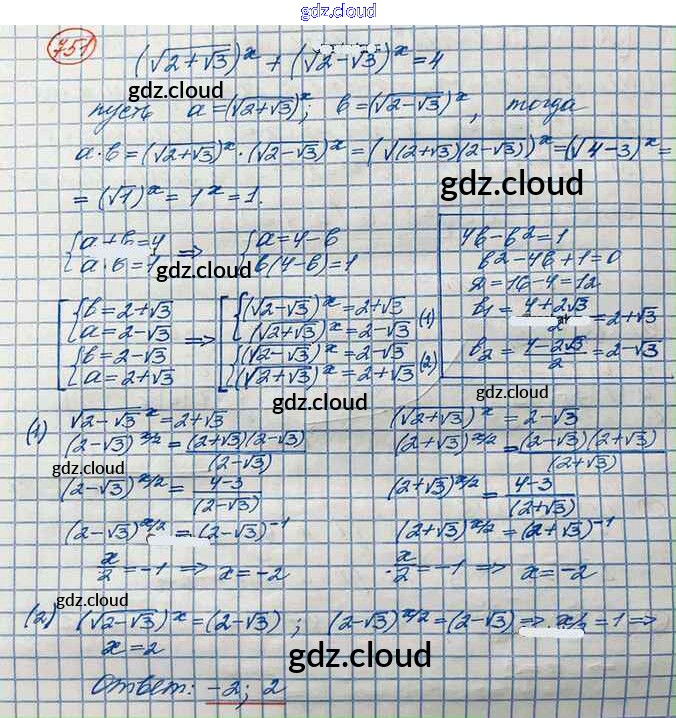 gdz.cloud
751
(√2+√3)ˣ + (√2-√3)ˣ = 4
gdz.cloud
пусть a=(√2+√3)ˣ; b=(√2-√3)ˣ, тогда
a·b=(√2+√3)ˣ·(√2-√3)ˣ=(√(2+√3)(2-√3))ˣ=(√4-3)ˣ=
gdz.cloud
=(√1)ˣ=1ˣ=1.
{a+b=4 {a·b=1 ⇒ {a=4-b {b(4-b)=1
gdz.cloud
4b-b²=1
b²-4b+1=0
D=16-4=12
b₁=(4+2√3)/2=2+√3
b₂=(4-2√3)/2=2-√3
[{b=2+√3 ⇒ [{(√2-√3)ˣ=2+√3
{a=2-√3 {(√2+√3)ˣ=2-√3 (1)
{b=2-√3 {(√2-√3)ˣ=2-√3
{a=2+√3 {(√2+√3)ˣ=2+√3 (2)
gdz.cloud
(1) √2-√3ˣ=2+√3 (√2+√3)ˣ=2-√3
(2-√3)^x/2=(2+√3)(2-√3)/(2-√3) (2+√3)^x/2=(2-√3)(2+√3)/(2+√3)
gdz.cloud
(2-√3)^x/2=4-3/(2-√3) (2+√3)^x/2=4-3/(2+√3)
gdz.cloud
(2-√3)^x/2=(2-√3)⁻¹ (2+√3)^x/2=(2+√3)⁻¹
x/2=-1 ⇒ x=-2 x/2=-1 ⇒ x=-2
gdz.cloud
(2) (√2-√3)ˣ=(2-√3); (2-√3)^x/2=(2-√3) ⇒ x/2=1 ⇒
x=2
gdz.cloud
Ответ: -2; 2